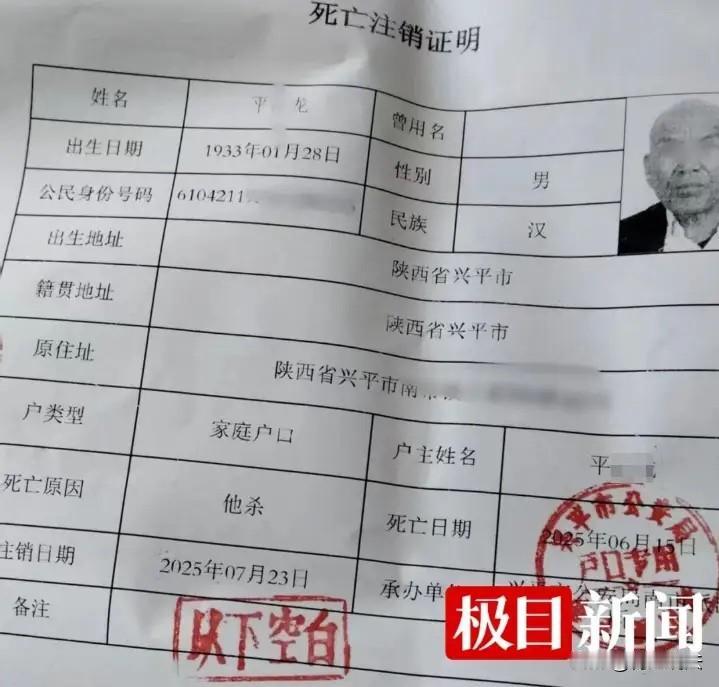 死亡注销证明
姓名 平 龙 曾用名
出生日期 1933年01月28日 性别 男
公民身份号码 6104211 民族 汉
出生地址 陕西省兴平市
籍贯地址 陕西省兴平市
原住址 陕西省兴平市南市
户类型 家庭户口 户主姓名 平
死亡原因 他杀 死亡日期 2025年06月15日
注销日期 2025年07月23日 承办单位 兴平市公安局南市
备注
以下空白
兴平市公安局
户口专用
极目新闻